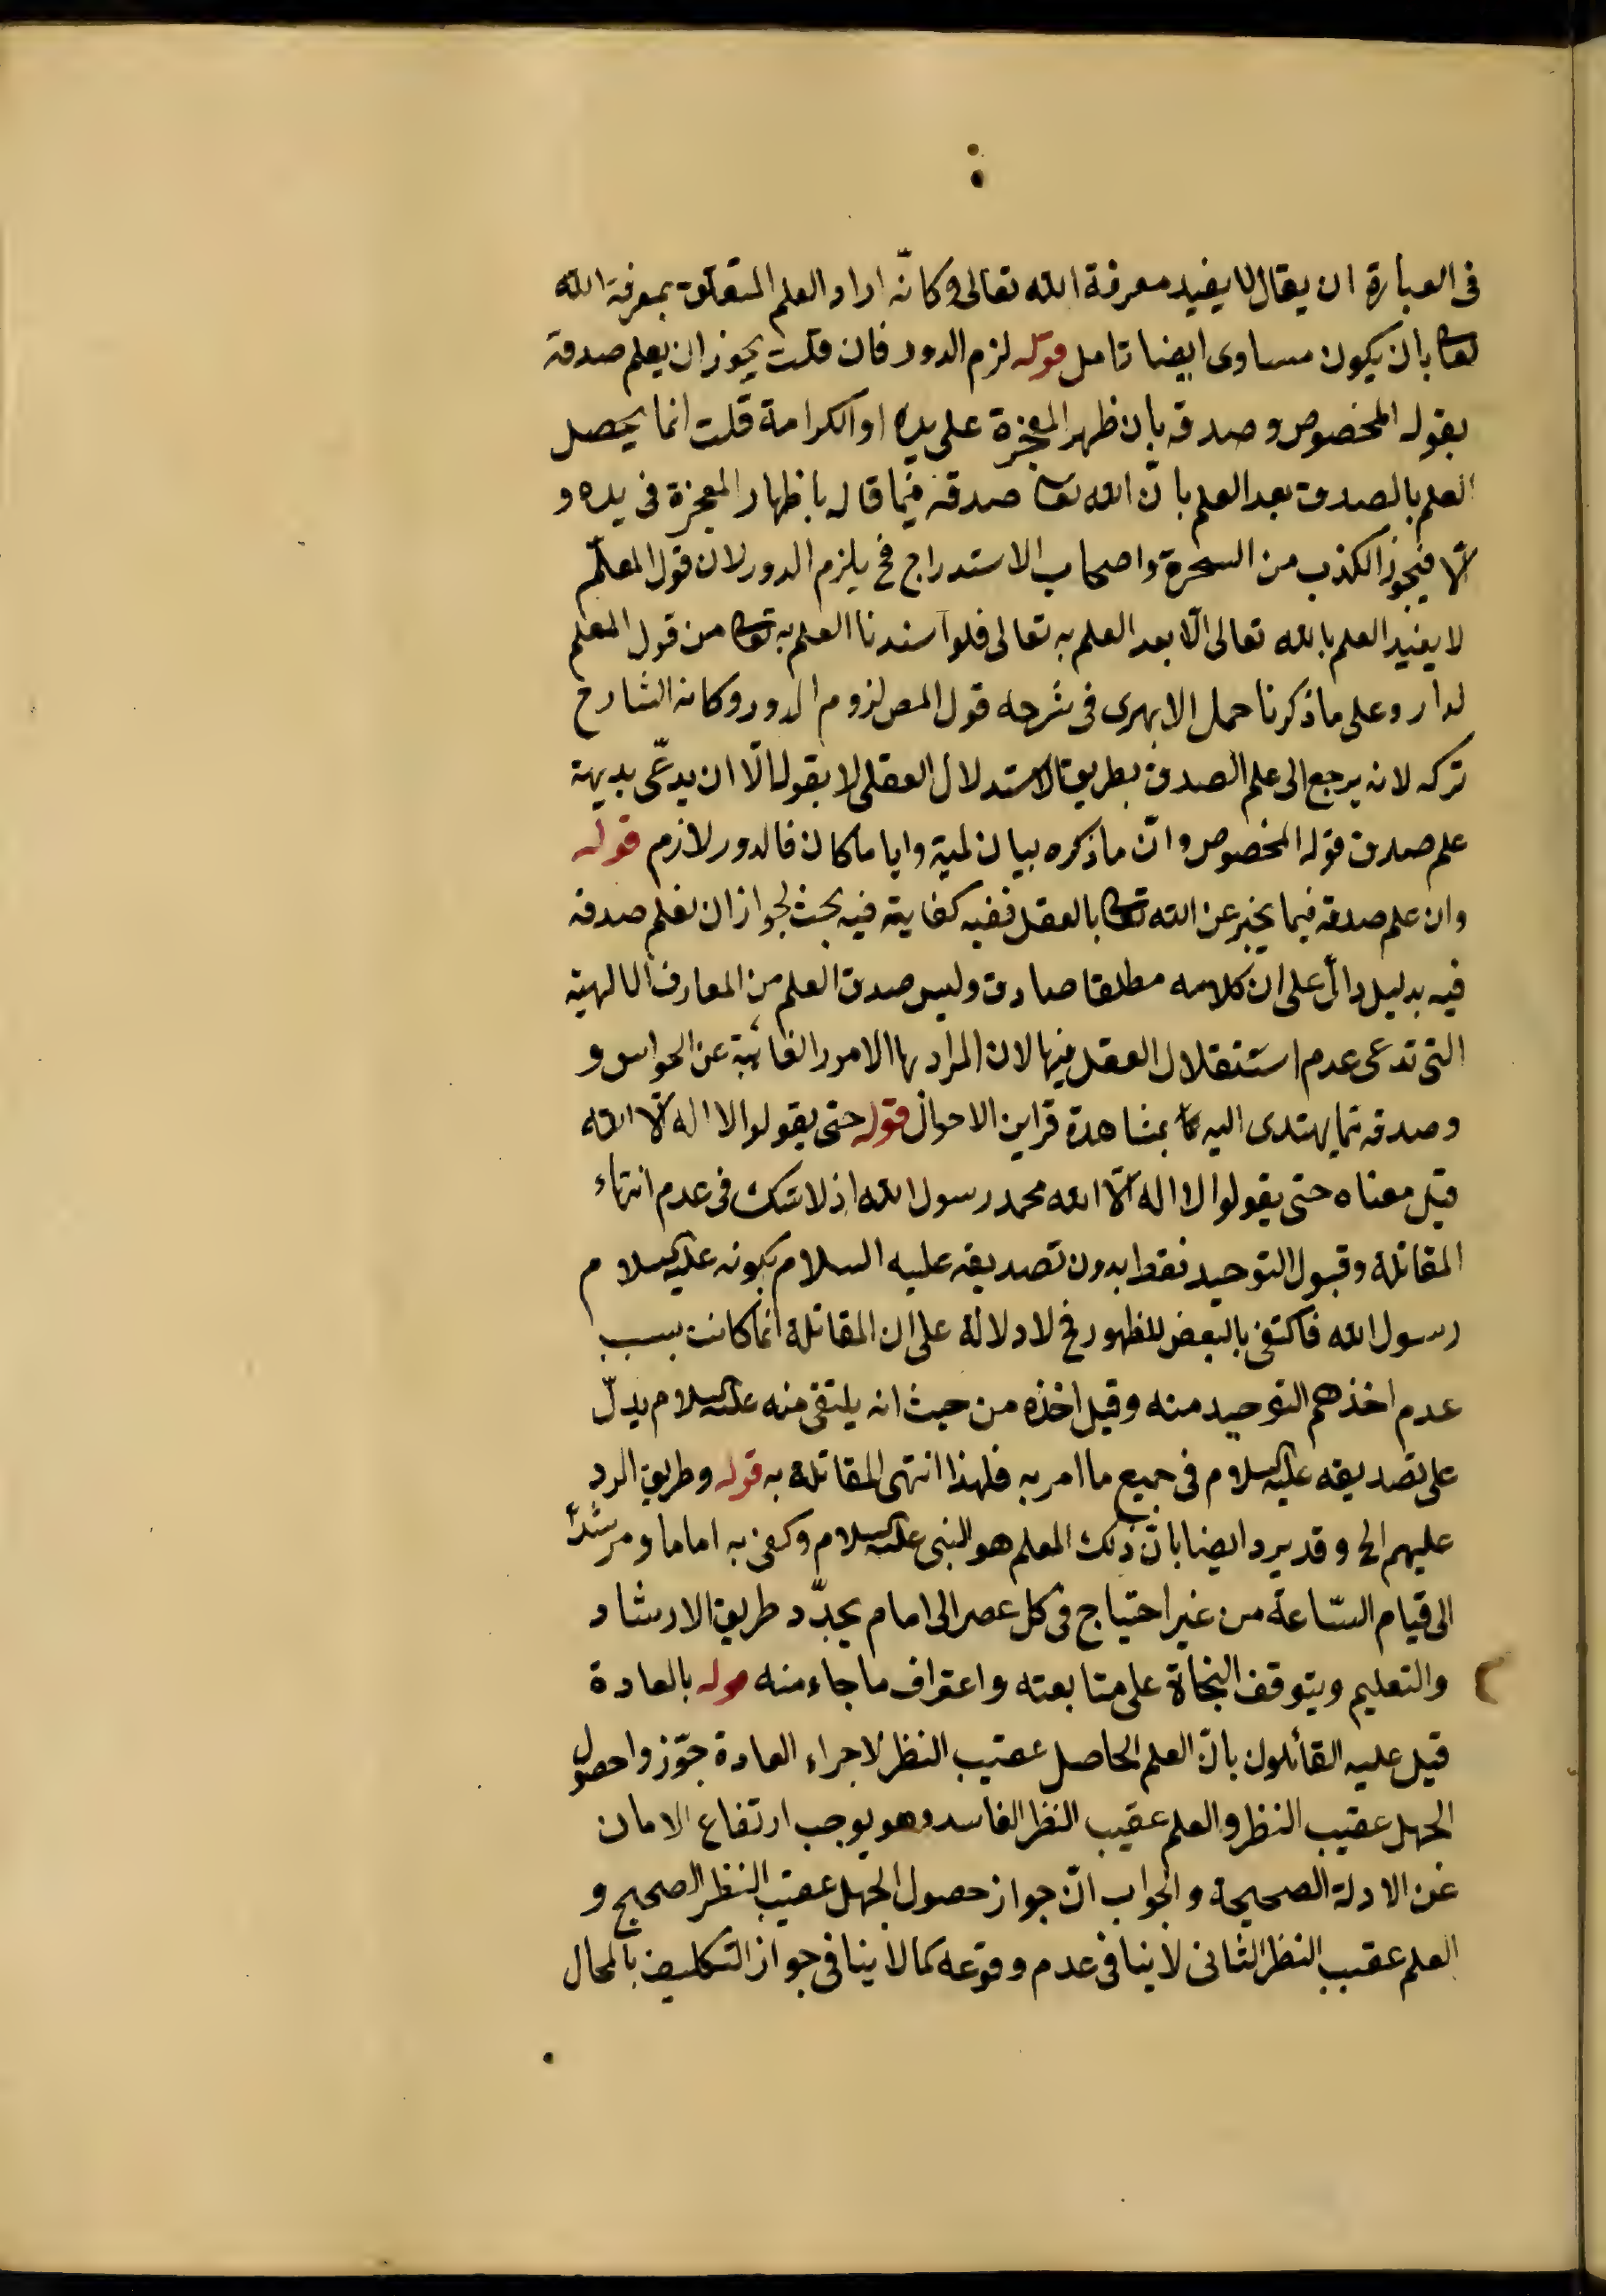 فى العبارة ان يقال لا يفيد معرفة الله تعالى وكانّه اراد العلم المتعلق بمعرفة الله
تعا بان يكون مساوى ايضا تامل قوله لزم الدور فان قلت يجوز ان يعلم صدقه
بقوله المخصوص وصدقه بان ظهر المعجزة على يده او الكرامة قلت انما يحصل
العلم بالصدق بعد العلم بانّ الله تعا صدقه فيما قاله باظهار المعجزة فى يده و
الّا فيجوز الكذب من السحرة واصحاب الاستدراج فح يلزم الدور لان قول المعلّم
لا يفيد العلم بالله تعالى الّا بعد العلم به تعالى فلو اسندنا العلم به تعا من قول المعلم
لدار وعلى ما ذكرنا حمل الابهرى فى شرحه قول المص لزوم الدور وكانه الشارح
تركه لانه يرجع الى علم الصدق بطريق الاستدلال العقلى لا بقوله الّا ان يدعّى بديهة
علم صدق قوله المخصوص وانّ ما ذكره بيان لمية وايا ما كان فالدور لازم قوله
وان علم صدقه فيما يخبر عن الله تعا بالعقل ففيه كفاية فيه بحث لجواز ان نعلم صدقه
فيه بدليل دالّ على ان كلامه مطلقا صادق وليس صدق العلم من المعارف الالهية
التى تدعى عدم استقلال العقل فيها لان المراد بها الامور الغائبة عن الحواس و
وصدقه مما يهتدى اليه بمشاهدة قراين الاحوال قوله حتى يقولوا لا اله الّا الله
قيل معناه حتى يقولوا لا اله الّا الله محمد رسول الله اذ لا شك فى عدم انتهاء
المقاتلة وقبول التوحيد فقط بدون تصديقه عليه السلام بكونه عليه السلام
رسول الله فاكتفى بالبعض للظهور فح لا دلالة على ان المقاتلة انما كانت بسبب
عدم اخذهم التوحيد منه وقيل اخذه من حيث انه يلتقى منه عليه السلام يدلّ
على تصديقه عليه السلام فى جميع ما امر به فلهذا انتهى المقاتلة به قوله وطريق الرد
عليهم الخ وقد يرد ايضا بانّ ذلك المعلم هو النبى عليه السلام وكفى به اماما ومرشدا
الى قيام السّاعة من غير احتياج فى كل عصر الى امام يجدّد طريق الارشاد
والتعليم ويتوقف النجاة على متابعته واعتراف ما جاء منه قوله بالعادة
قيل عليه القائلون بانّ العلم الحاصل عقيب النظر لاجراء العادة جوّزوا حصول
الجهل عقيب النظر والعلم عقيب النظر الفاسد وهو يوجب ارتفاع الامان
عن الادلة الصحيحة والجواب انّ جواز حصول الجهل عقيب النظر الصحيح و
العلم عقيب النظر الثانى لا ينافى عدم وقوعه كما لا ينافى جواز التكليف بالمحال